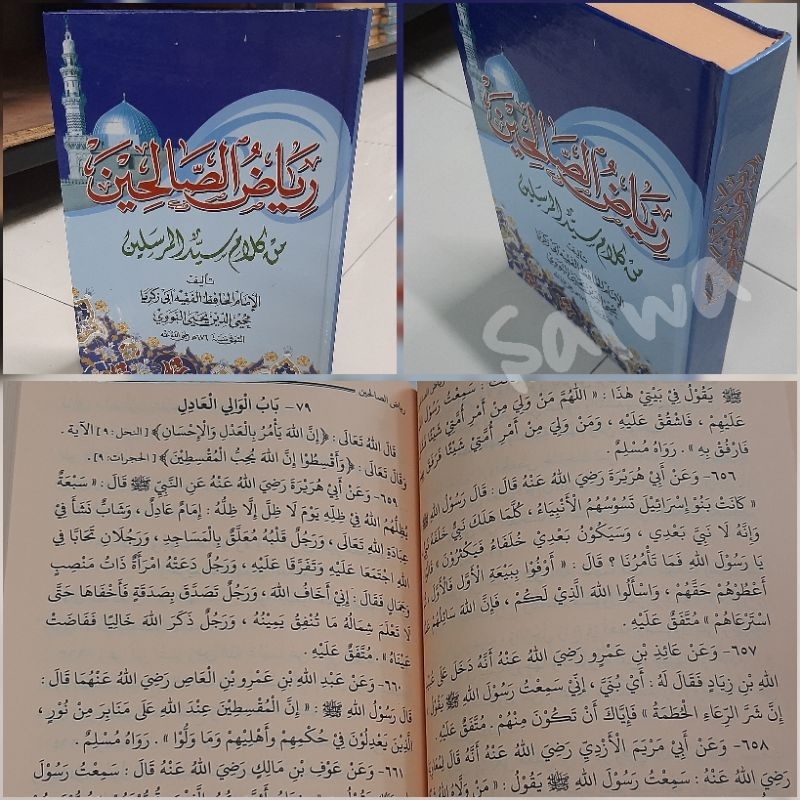 رِيَاضُ الصَّالِحِيْنَ
مِنْ كَلَامِ سَيِّدِ الْمُرْسَلِينَ
تأليف
الإمام الحافظ الفقيه أبي زكريا
محيي الدين يحيى النووي
المتوفى سنة ٦٧٦هـ رضي الله عنه
رِيَاضُ الصَّالِحِيْنَ
مِنْ كَلَامِ سَيِّدِ الْمُرْسَلِينَ
تأليف
salwa
ﷺ يَقُولُ فِي بَيْتِي هٰذَا : « اللَّهُمَّ مَنْ وَلِيَ مِنْ أَمْرِ أُمَّتِي شَيْئًا فَشَقَّ
عَلَيْهِمْ ، فَاشْقُقْ عَلَيْهِ ، وَمَنْ وَلِيَ مِنْ أَمْرِ أُمَّتِي شَيْئًا فَرَفَقَ بِهِمْ
فَارْفُقْ بِهِ » . رَوَاهُ مُسْلِمٌ .
٦٥٦- وَعَنْ أَبِي هُرَيْرَةَ رَضِيَ اللهُ عَنْهُ قَالَ : قَالَ رَسُولُ اللهِ
« كَانَتْ بَنُو إِسْرَائِيلَ تَسُوسُهُمُ الْأَنْبِيَاءُ ، كُلَّمَا هَلَكَ نَبِيٌّ خَلَفَهُ
وَإِنَّهُ لَا نَبِيَّ بَعْدِي ، وَسَيَكُونُ بَعْدِي خُلَفَاءُ فَيَكْثُرُونَ »
يَا رَسُولَ اللهِ فَمَا تَأْمُرُنَا ؟ قَالَ : « أَوْفُوا بِبَيْعَةِ الْأَوَّلِ فَالْأَوَّلِ
أَعْطُوهُمْ حَقَّهُمْ ، وَاسْأَلُوا اللهَ الَّذِي لَكُمْ ، فَإِنَّ اللهَ سَائِلُهُمْ
اسْتَرْعَاهُمْ » مُتَّفَقٌ عَلَيْهِ .
٦٥٧- وَعَنْ عَائِذِ بْنِ عَمْرٍو رَضِيَ اللهُ عَنْهُ أَنَّهُ دَخَلَ عَلَى
اللهِ بْنِ زِيَادٍ فَقَالَ لَهُ : أَيْ بُنَيَّ ، إِنِّي سَمِعْتُ رَسُولَ اللهِ ﷺ يَقُولُ
إِنَّ شَرَّ الرِّعَاءِ الْحُطَمَةُ » فَإِيَّاكَ أَنْ تَكُونَ مِنْهُمْ . مُتَّفَقٌ عَلَيْهِ.
٦٥٨- وَعَنْ أَبِي مَرْيَمَ الْأَزْدِيِّ رَضِيَ اللهُ عَنْهُ أَنَّهُ قَالَ لِمُعَاوِيَةَ
رَضِيَ اللهُ عَنْهُ : سَمِعْتُ رَسُولَ اللهِ ﷺ يَقُولُ : « مَنْ وَلَّاهُ اللهُ
رياض الصالحين
٧٩- بَابُ الْوَالِي الْعَادِلِ
قَالَ اللهُ تَعَالَى : ﴿إِنَّ اللهَ يَأْمُرُ بِالْعَدْلِ وَالْإِحْسَانِ﴾ [النحل: ٩٠] الآية .
وَقَالَ تَعَالَى : ﴿وَأَقْسِطُوا إِنَّ اللهَ يُحِبُّ الْمُقْسِطِيْنَ﴾ [الحجرات: ٩].
٦٥٩- وَعَنْ أَبِي هُرَيْرَةَ رَضِيَ اللهُ عَنْهُ عَنِ النَّبِيِّ ﷺ قَالَ : « سَبْعَةٌ
يُظِلُّهُمُ اللهُ فِي ظِلِّهِ يَوْمَ لَا ظِلَّ إِلَّا ظِلُّهُ : إِمَامٌ عَادِلٌ ، وَشَابٌّ نَشَأَ فِي
عِبَادَةِ اللهِ تَعَالَى ، وَرَجُلٌ قَلْبُهُ مُعَلَّقٌ بِالْمَسَاجِدِ ، وَرَجُلَانِ تَحَابَّا فِي
اللهِ اجْتَمَعَا عَلَيْهِ وَتَفَرَّقَا عَلَيْهِ ، وَرَجُلٌ دَعَتْهُ امْرَأَةٌ ذَاتُ مَنْصِبٍ
وَجَمَالٍ فَقَالَ : إِنِّي أَخَافُ اللهَ ، وَرَجُلٌ تَصَدَّقَ بِصَدَقَةٍ فَأَخْفَاهَا حَتَّى
لَا تَعْلَمَ شِمَالُهُ مَا تُنْفِقُ يَمِيْنُهُ ، وَرَجُلٌ ذَكَرَ اللهَ خَالِيًا فَفَاضَتْ
عَيْنَاهُ » . مُتَّفَقٌ عَلَيْهِ .
٦٦٠- وَعَنْ عَبْدِ اللهِ بْنِ عَمْرِو بْنِ الْعَاصِ رَضِيَ اللهُ عَنْهُمَا قَالَ :
قَالَ رَسُولُ اللهِ ﷺ : « إِنَّ الْمُقْسِطِيْنَ عِنْدَ اللهِ عَلَى مَنَابِرَ مِنْ نُوْرٍ ،
الَّذِيْنَ يَعْدِلُوْنَ فِي حُكْمِهِمْ وَأَهْلِيْهِمْ وَمَا وَلُوْا » . رَوَاهُ مُسْلِمٌ.
٦٦١- وَعَنْ عَوْفِ بْنِ مَالِكٍ رَضِيَ اللهُ عَنْهُ قَالَ : سَمِعْتُ رَسُوْلَ